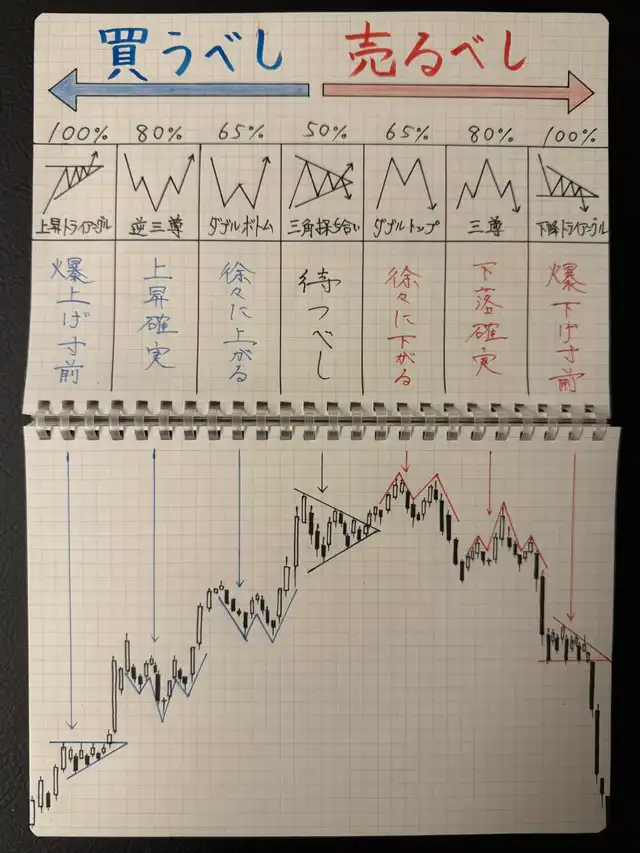 買うべし 売るべし
100% 80% 65% 50% 65% 80% 100%
上昇トライアングル 逆三尊 ダブルボトム 三角保ち合い ダブルトップ 三尊 下降トライアングル
爆上げ寸前
上昇確実
徐々に上がる
待つべし
徐々に下がる
下落確実
爆下げ寸前